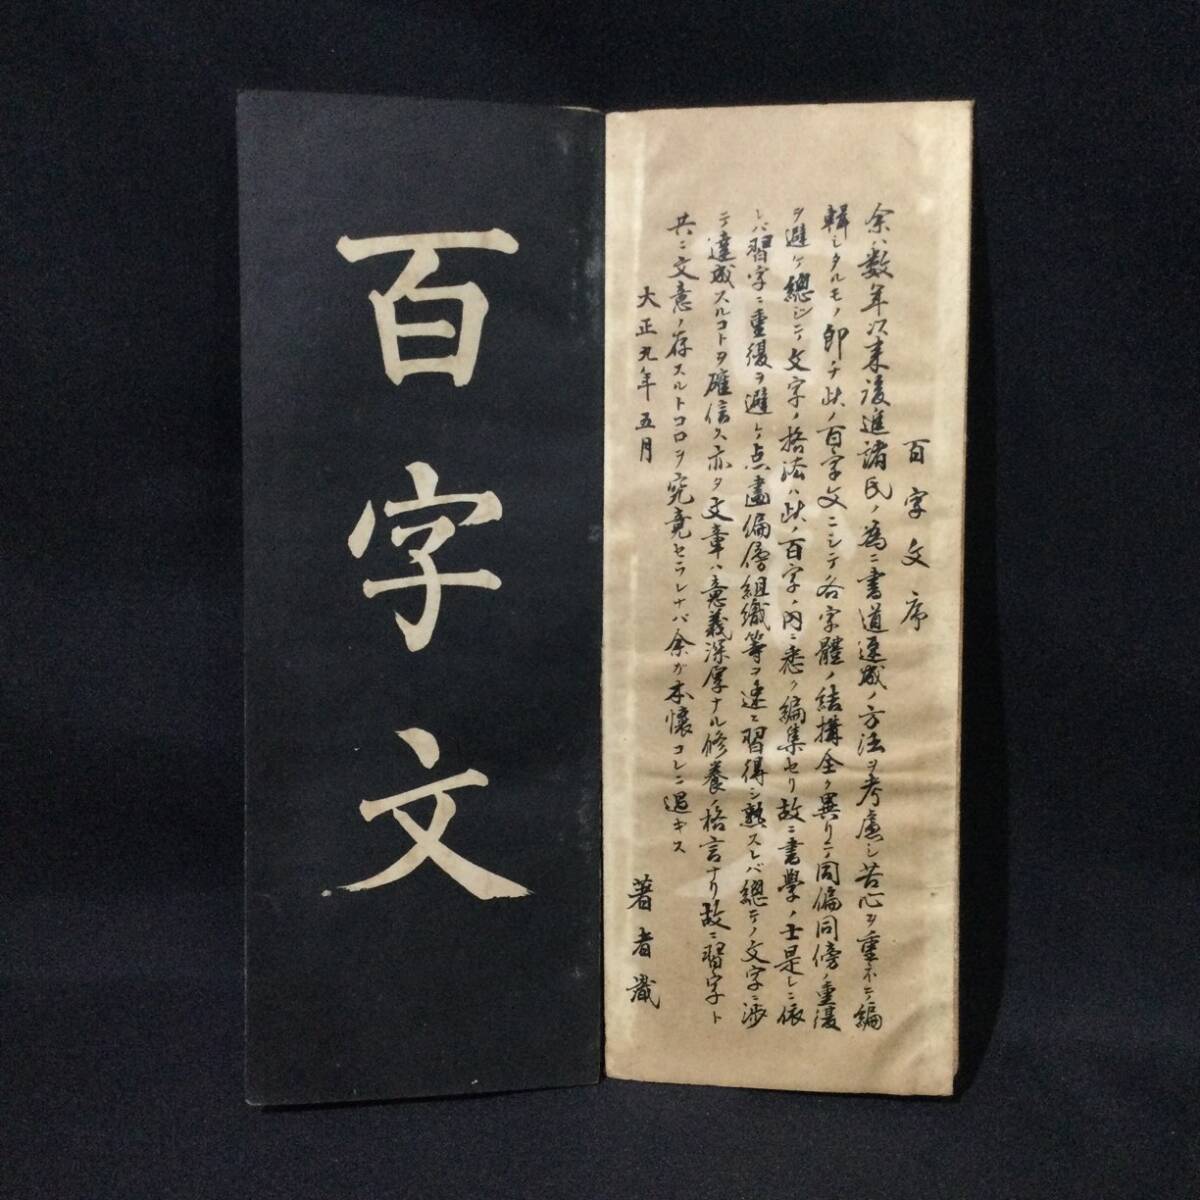 百字文序
余ハ数年以来後進諸氏ノ為ニ書道速成ノ方法ヲ考慮シ苦心ヲ重ネテ編
輯シタルモノ即チ此ノ百字文ニシテ各字體ノ結構全ク異リテ同偏同傍ノ重復
ヲ避ケ總シテ文字ノ格法ハ此ノ百字ノ内ニ悉ク編集セリ故ニ書學ノ士是レニ依
レバ習字ニ重復ヲ避ケ点畫偏傍組織等ヲ速ニ習得シ熟スレバ總テノ文字ニ渉
テ達成スルコトヲ確信ス亦タ文章ハ意義深厚ナル修養ノ格言ナリ故ニ習字ト
共ニ文意ノ存スルトコロヲ究竟セラレナバ余ガ本懐コレニ過キス
大正九年五月
著者識
百字文